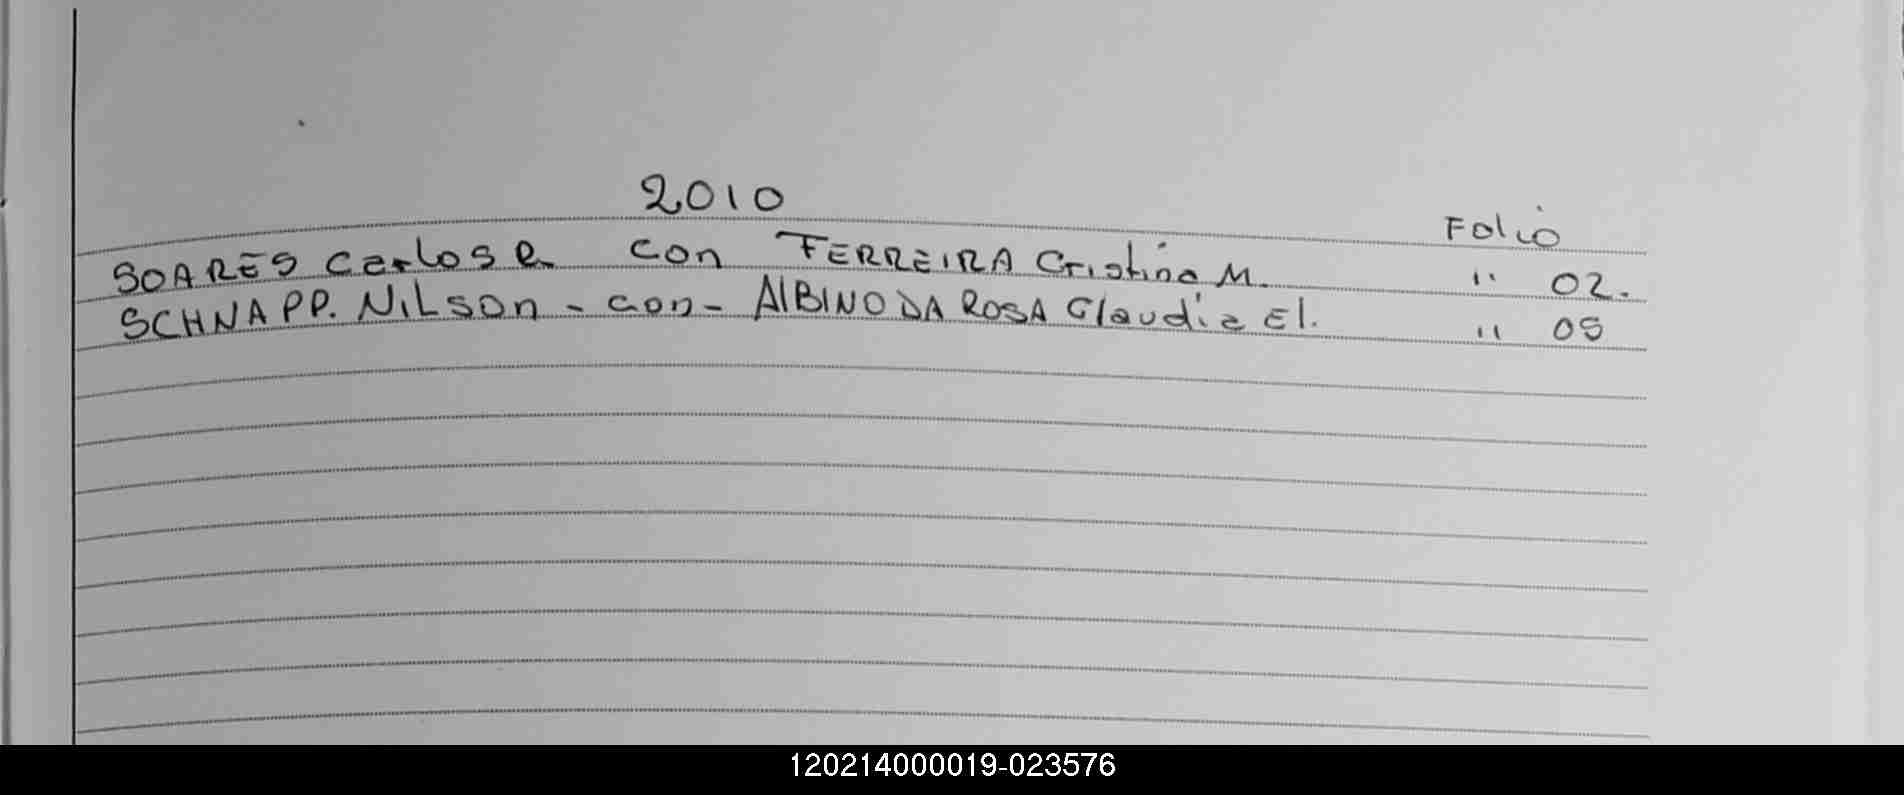 2010
Folio
SOARES Carlos R con FERREIRA Cristina M. " 02.
SCHNAPP. NILSON - con - ALBINO DA ROSA Claudia El. " 05
120214000019-023576